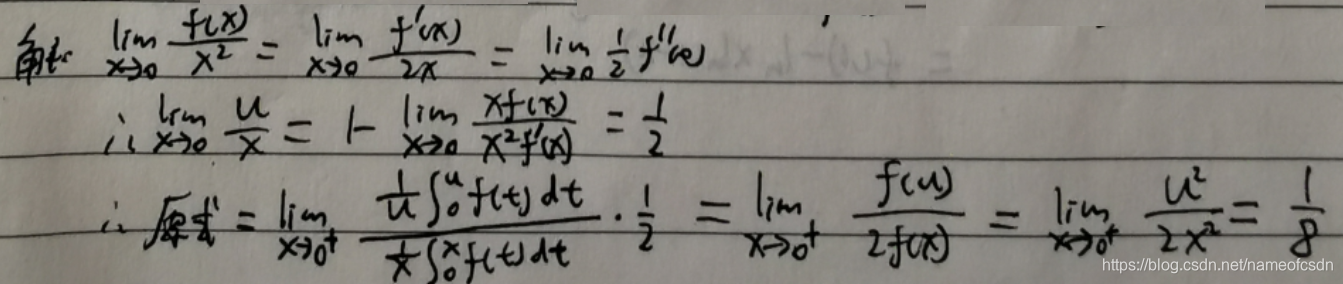 解: lim x→0 f(x)/x² = lim x→0 f'(x)/2x = lim x→0 1/2 f''(0)
∴ lim x→0 u/x = 1 - lim x→0 xf(x)/x²f'(x) = 1/2
∴ 原式 = lim x→0⁺ (1/u ∫₀ᵘ f(t) dt)/(1/x ∫₀ˣ f(t) dt) · 1/2 = lim x→0⁺ f(u)/2f(x) = lim x→0⁺ u²/2x² = 1/8
https://blog.csdn.net/nameofcsdn